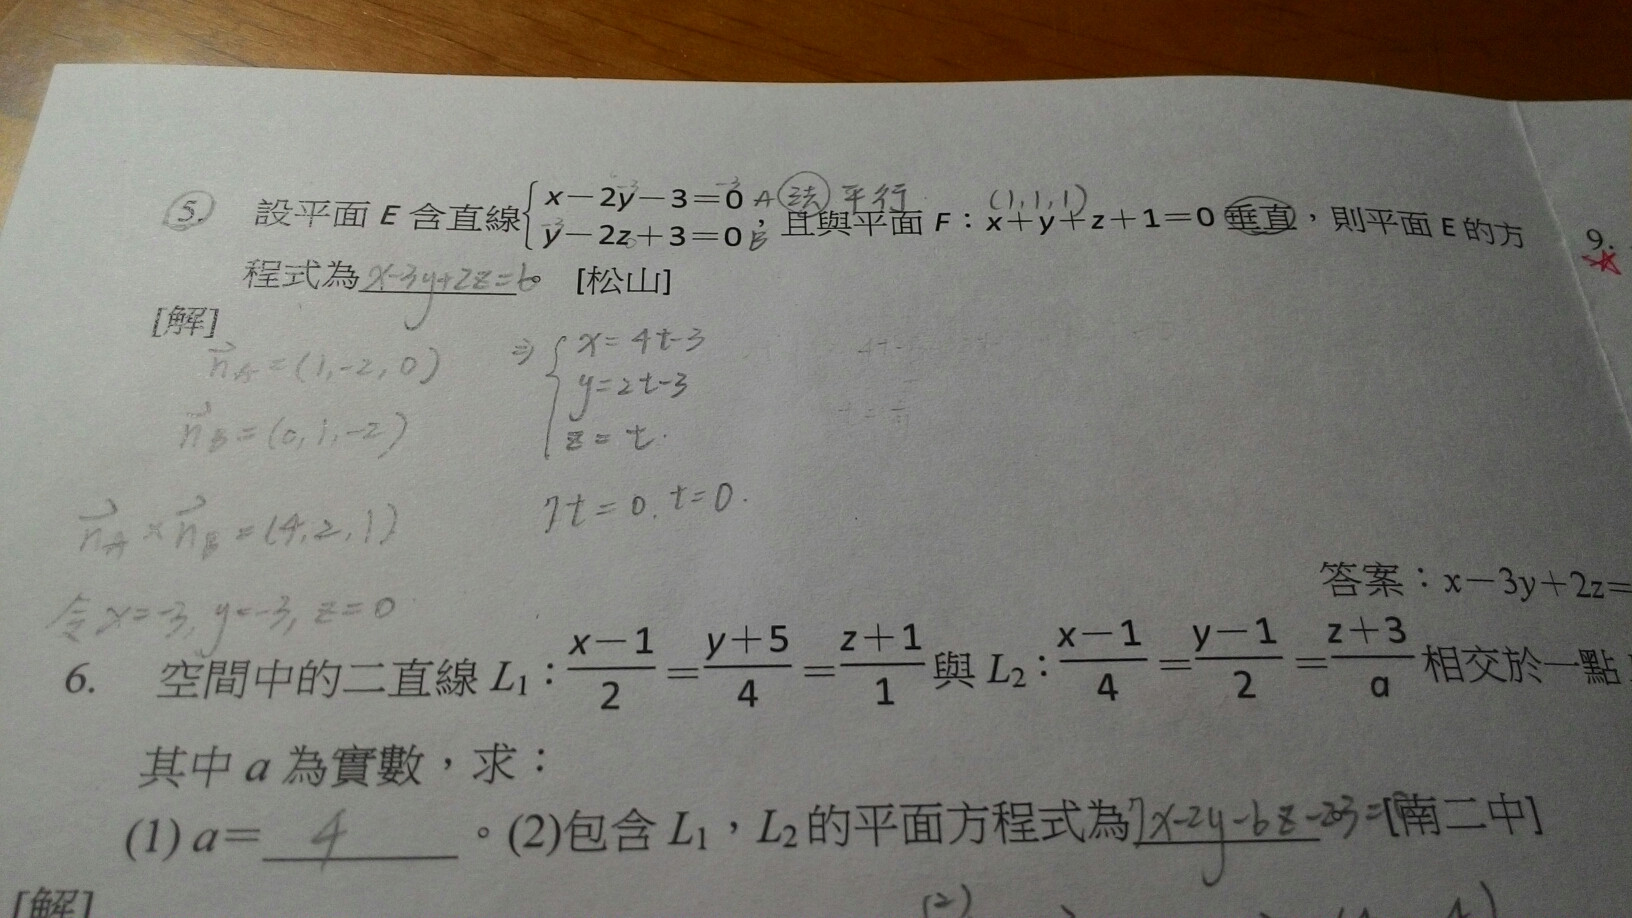 5. 設平面 E 含直線{x－2y－3＝0 A 法 平行
y－2z＋3＝0 B，且與平面 F：x＋y＋z＋1＝0 垂直，則平面 E 的方
(1,1,1)
程式為 x-3y+2z=6。 [松山]
9.
[解]
n_A = (1,-2,0)
n_B = (0,1,-2)
n_A × n_B = (4,2,1)
令 x=-3, y=-3, z=0
⇒ { x = 4t-3
y = 2t-3
z = t.
7t = 0. t = 0.
答案：x－3y＋2z＝
6. 空間中的二直線 L₁：(x－1)/2＝(y＋5)/4＝(z＋1)/1 與 L₂：(x－1)/4＝(y－1)/2＝(z＋3)/a 相交於一點
其中 a 為實數，求：
(1) a＝ 4 。(2)包含 L₁，L₂ 的平面方程式為 7x-2y-6z-23= [南二中]
[解]
(2)